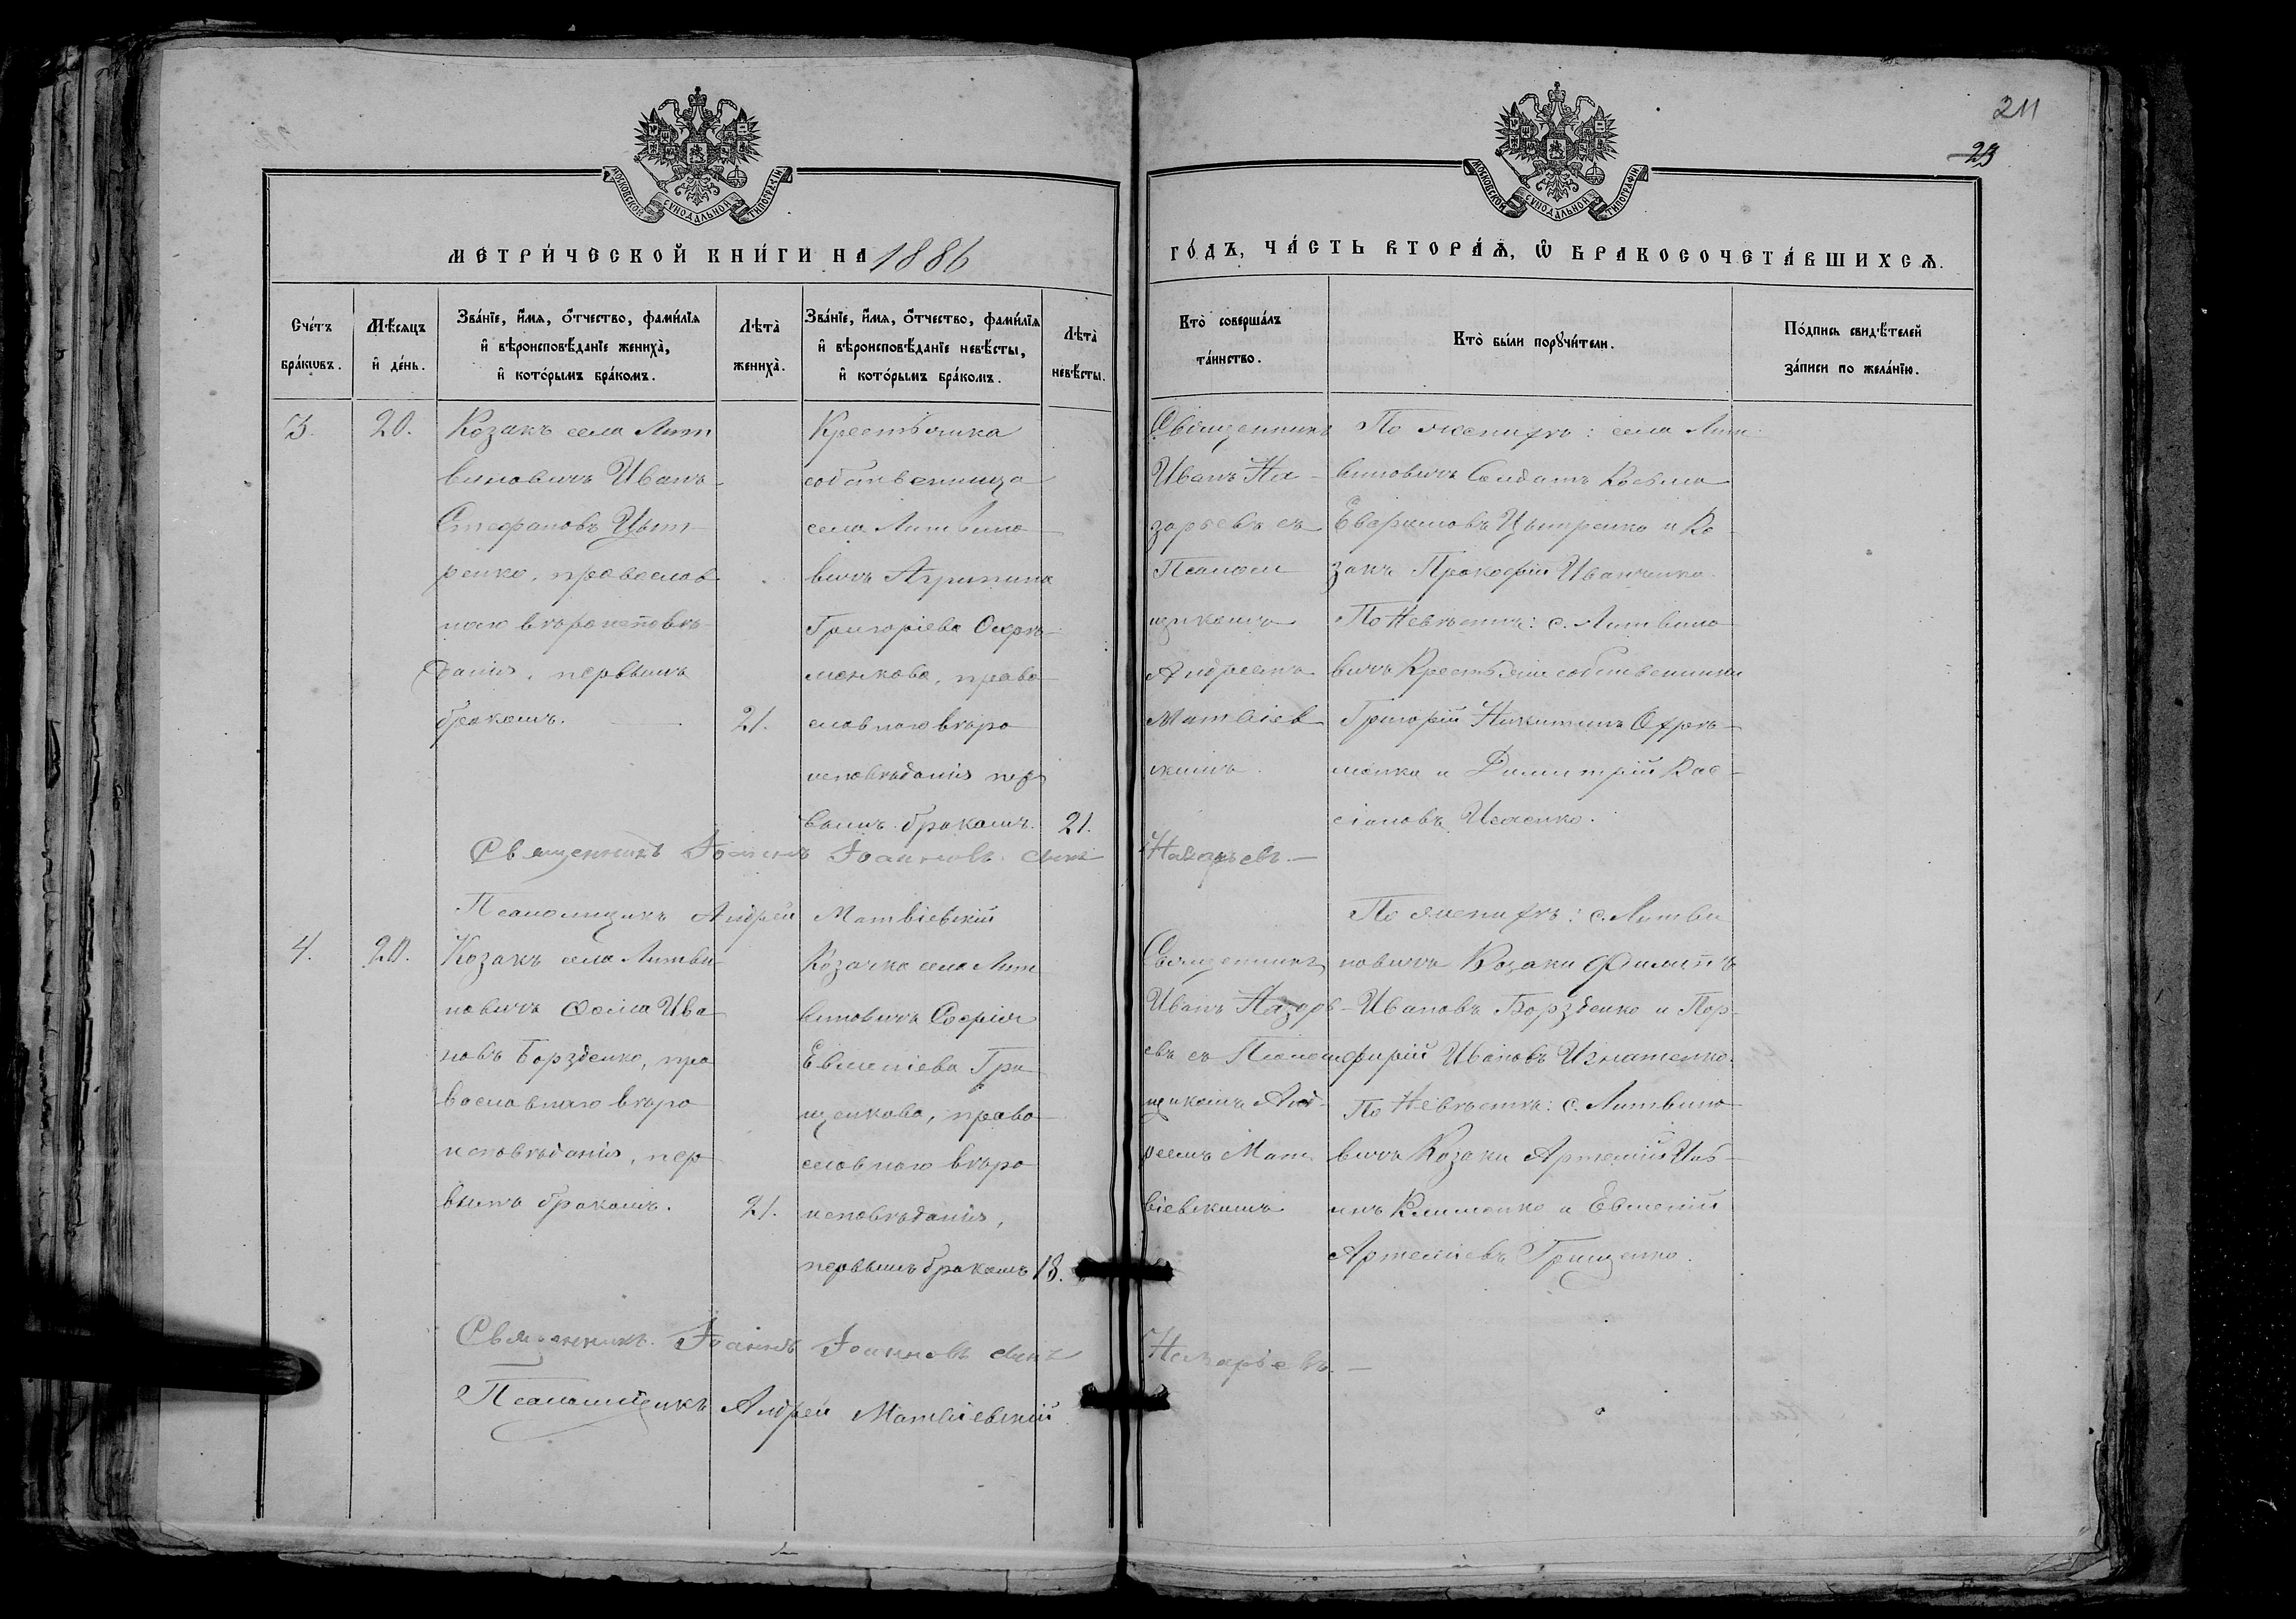 211
23
МОСКОВСКОЙ СѴНОДАЛЬНОЙ ТИПОГРАФІИ
МОСКОВСКОЙ СѴНОДАЛЬНОЙ ТИПОГРАФІИ
МЕТРИ́ЧЕСКОЙ КНИ́ГИ НА 1886
ГО́ДЪ, ЧА́СТЬ ВТОРА́Ѧ, Ѡ҆ БРАКОСОЧЕТА́ВШИХСѦ.
Сче́тъ бра́кѡвъ.
Мѣ́сяцъ и҆ де́нь.
Зва́нїе, и҆́мя, ѻ҆́тчество, фами́лїя
и҆ вѣроисповѣ́данїе жениха̀,
и҆ кото́рымъ бра́комъ.
Лѣта̀ жениха̀.
Зва́нїе, и҆́мя, ѻ҆́тчество, фами́лїя
и҆ вѣроисповѣ́данїе невѣ́сты,
и҆ кото́рымъ бра́комъ.
Лѣта̀ невѣ́сты.
Кто̀ соверша́лъ
та́инство.
Кто̀ бы́ли порꙋчи́тели.
По́дпись свидѣ́телей
за́писи по жела́нїю.
3.
20.
Козакъ села Лит
виновичъ Иванъ
Стефановъ Цыт
ренко, православ
наго вѣроисповѣ
данія, первымъ
бракомъ.
21.
Крестьянка
собственница
села Литвино
вичъ Агрипина
Григоріева Охрѣ
менкова, право
славнаго вѣро
исповѣданія пер
вымъ бракомъ.
21.
Священникъ
Иванъ На
зарьевъ съ
Псаломщ
щикомъ
Андреемъ
Матвіев
скимъ.
По женихѣ: села Лит
виновичъ Солдатъ Косьма
Евфимовъ Цытренко и Ко
закъ Прокофій Иванченко
По Невѣстѣ: с. Литвино
вичъ Крестьяне собственники
Григорій Никитинъ Охрѣ
менко и Димитрій Кас
сіановъ Исаенко.
Священникъ Іоаннъ Іоанновъ сынъ Назарьевъ.
Псаломщикъ Андрей Матвіевскій
4.
20.
Козакъ села Литви
новичъ Ѳома Ива
новъ Борзденко, пра
вославнаго вѣро
исповѣданія, пер
вымъ бракомъ.
21.
Козачка села Лит
виновичъ Софія
Евменіева Гри
щенкова, право
славнаго вѣро
исповѣданія,
первымъ бракомъ
18.
Священникъ
Иванъ Назарь
евъ съ Псалом
щикомъ Анд
реемъ Мат
віевскимъ
По женихѣ: с. Литви
новичъ Козаки Филиппъ
Ивановъ Борзденко и Пор
фирій Ивановъ Игнатенко.
По Невѣстѣ: с. Литвино
вичъ Козаки Артемій
Клименко и Евменій
Артеміевъ Грищенко.
Священникъ Іоаннъ Іоанновъ сынъ Назарьевъ
Псаломщикъ Андрей Матвіевскій